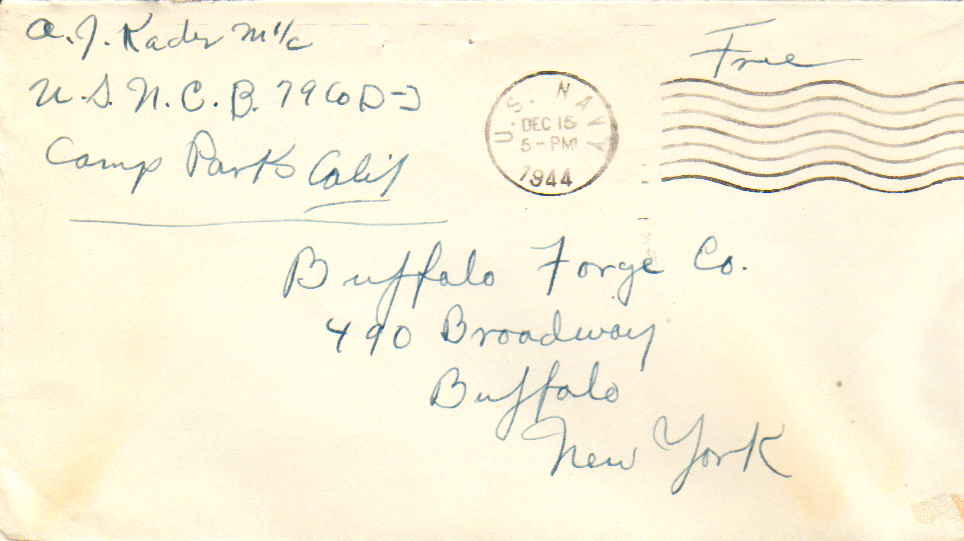 A. J. Kader M 1/c
U.S. N.C.B. 79 Co D-3
Camp Parks Calif
Free
U.S. NAVY
DEC 15
5-PM
1944
Buffalo Forge Co.
490 Broadway
Buffalo
New York